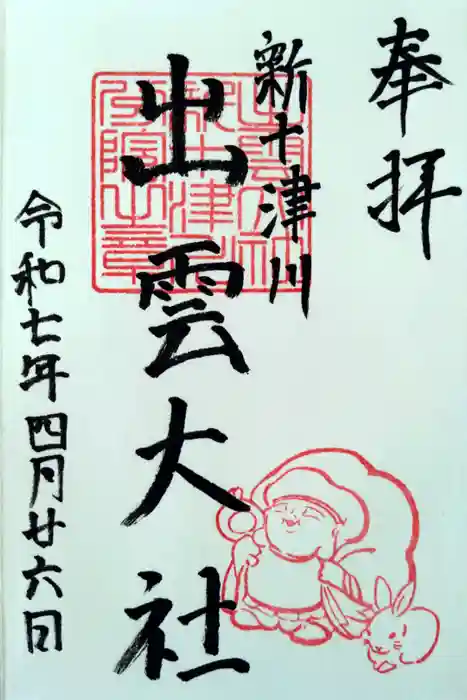 奉拝
新十津川
出雲大社
令和七年四月廿六日